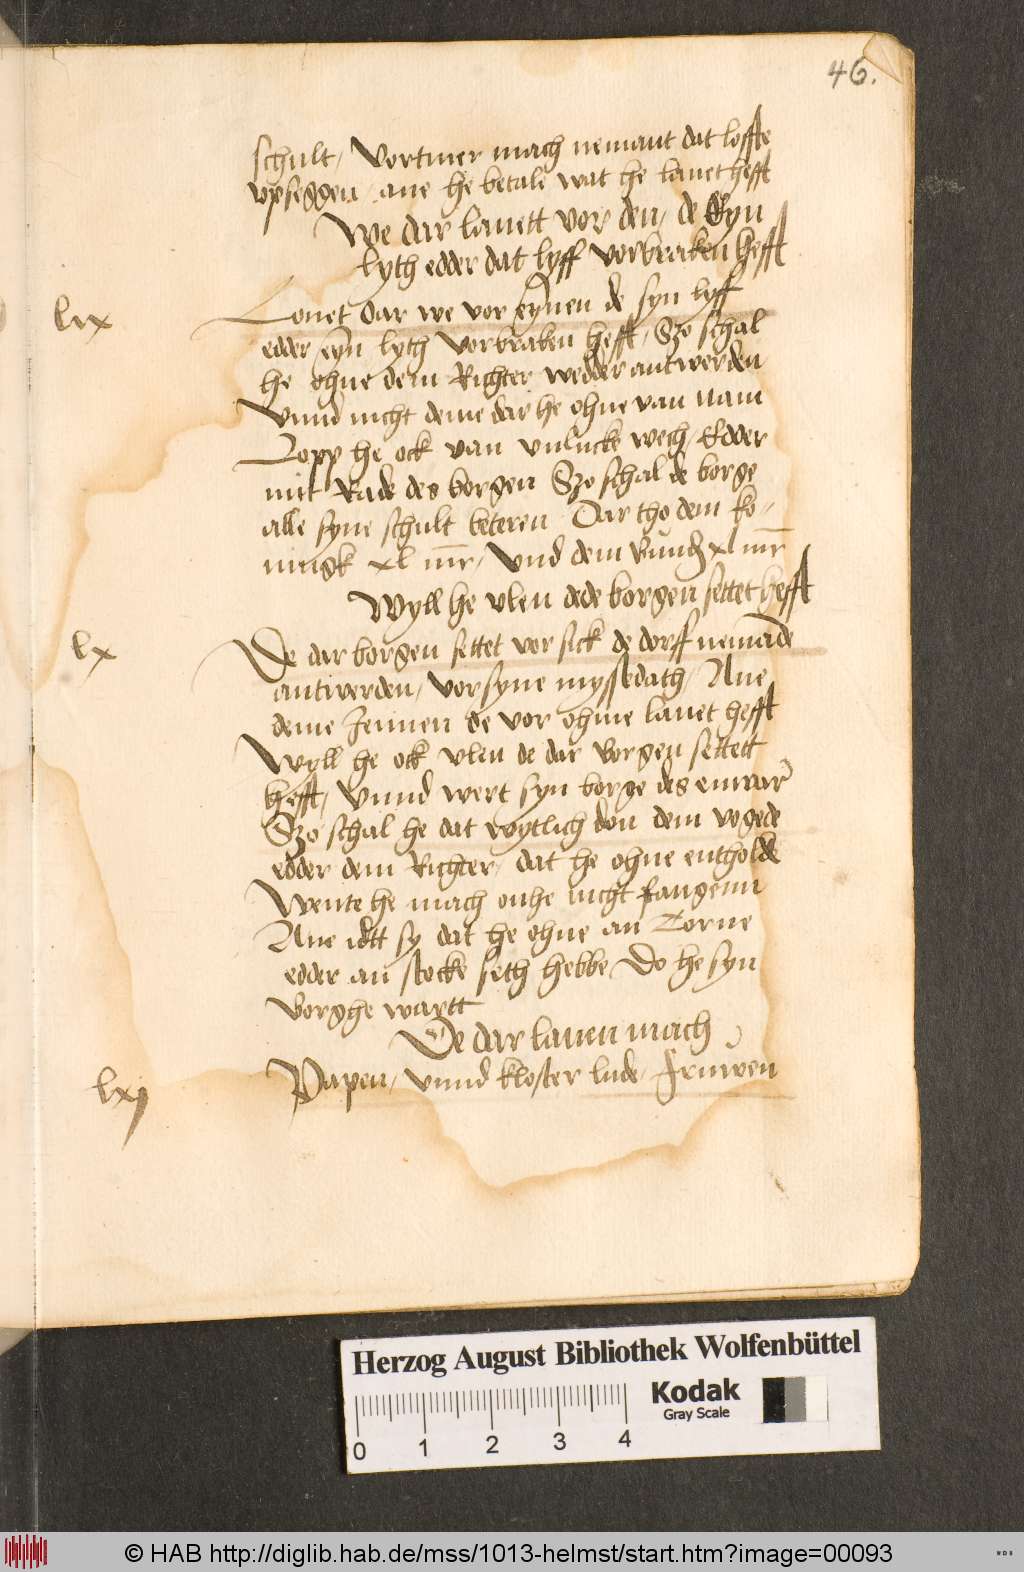 46.
schult, Vortmer mach nemant dat loffte
vpseggen, ane he betale wat he lauet hefft
We dar lauett vor den, de Eyn
lyth edder dat lyff vorbraken hefft
lix
Louet dar we vor eynen de syn lyff
edder eyn lyth vorbraken hefft, Szo schal
he ohne dem Richter wedder antwerden
Vnnd nicht deme dar he ohne van nam
Lopp he ock van vnlucke wech, Edder
mit Rade des borgen Szo schal de borge
alle syne schult beteren Dar tho dem ko-
ningk xl mr, Vnd dem Bunden xl mr
Wyll he vlen dede borgen settet hefft
lx
De dar borgen settet vor sick de dorff nemande
antwerden, vor syne myssedath, Ane
deme Jennen de vor ohme lauet hefft
Wyll he ock vlen de dar Borgen settett
hefft, Vnnd wert syn borge des enwar
Szo schal he dat wytlich don dem vogede
edder dem Richter, dat he ohne entholde
Wente he mach onhe nicht fangenn
Ane idtt sy dat he ohne an Torne
edder an stocke seth hebbe Do he syn
Borghe wartt
De dar lauen mach
lxj
Papen, vnnd kloster lude, Fruwen
Herzog August Bibliothek Wolfenbüttel
Kodak
Gray Scale
0 1 2 3 4
© HAB http://diglib.hab.de/mss/1013-helmst/start.htm?image=00093